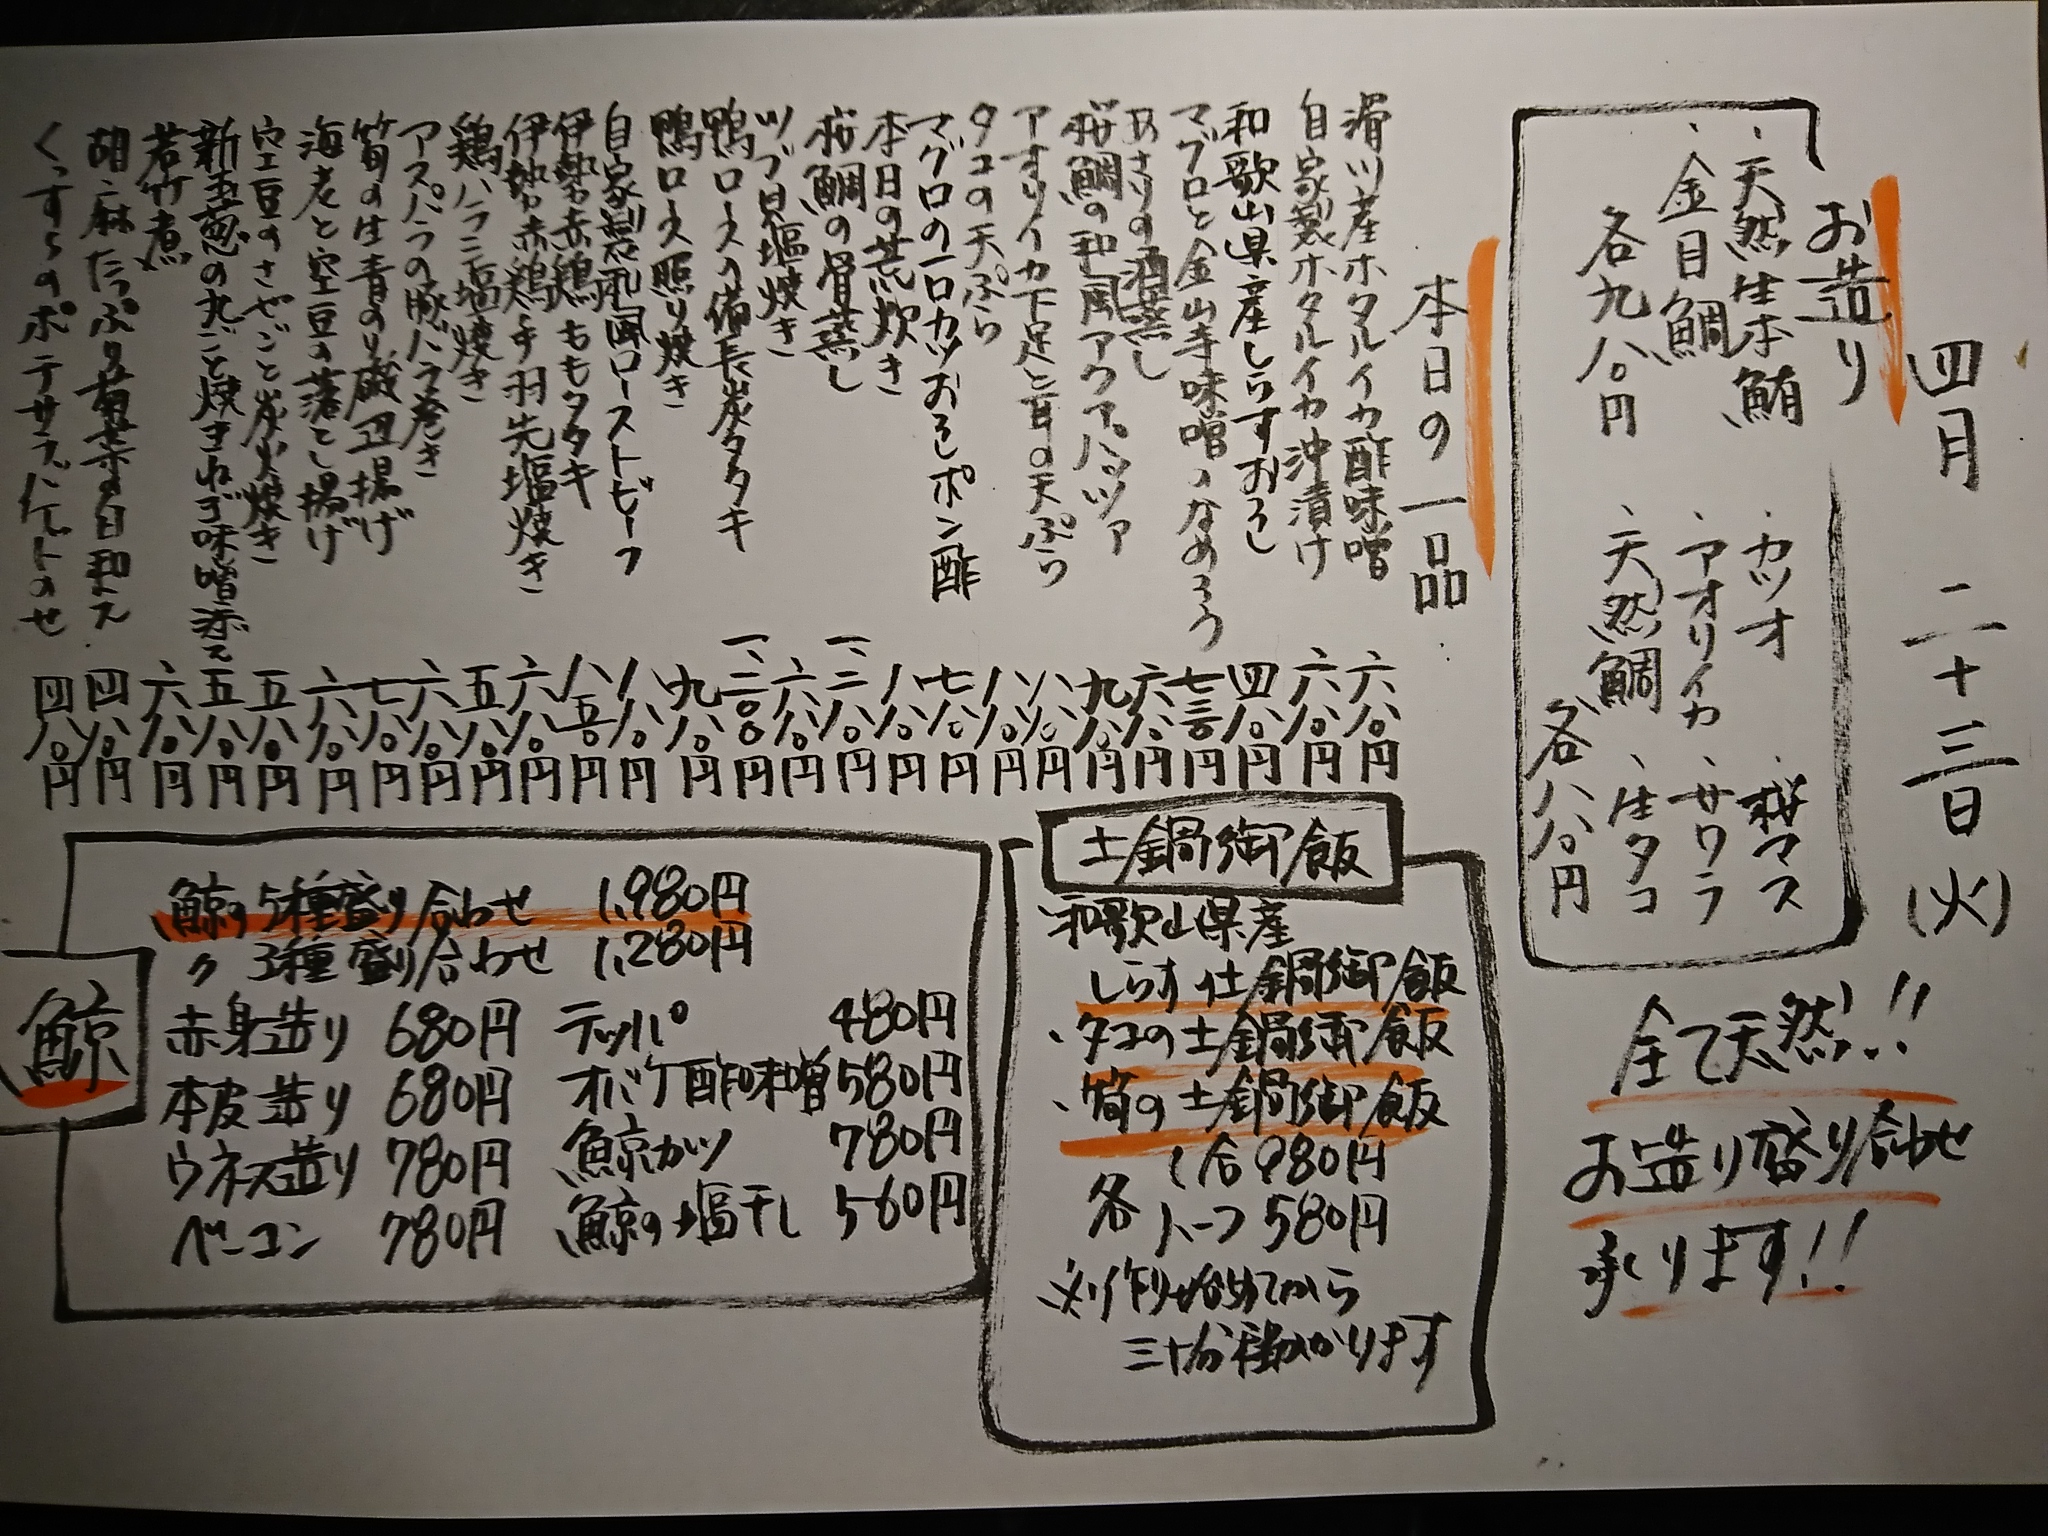 四月 二十三日(火)
お造り
・天然生本鮪
・金目鯛
各九八〇円
・カツオ ・桜マス
・アオリイカ ・サワラ
・天然鯛 ・生タコ
各八八〇円
全て天然!!
お造り盛り合わせ
承ります!!
本日の一品
滑川産ホタルイカ酢味噌 六八〇円
自家製ホタルイカ沖漬け 六八〇円
和歌山県産しらすおろし 四八〇円
マグロと金山寺味噌のなめろう 七三〇円
あさりの酒蒸し 六八〇円
桜鯛の和風アクアパッツァ 九八〇円
アオリイカ下足と耳の天ぷら 八八〇円
タコの天ぷら 八八〇円
マグロの一口カツおろしポン酢 七八〇円
本日の荒炊き 八八〇円
桜鯛の骨蒸し 一、二八〇円
ツブ貝塩焼き 六八〇円
鴨ロースの備長炭タタキ 一、二〇〇円
鴨ロース照り焼き 九八〇円
自家製和風ローストビーフ 八八〇円
伊勢赤鶏ももタタキ 八五〇円
伊勢赤鶏手羽先塩焼き 六八〇円
鶏ハラミ塩焼き 五八〇円
アスパラの豚バラ巻き 六八〇円
筍の生青のり磯辺揚げ 七八〇円
海老と空豆の落とし揚げ 六八〇円
空豆のさやごと炭火焼き 五八〇円
新玉葱の丸ごと焼きねぎ味噌添え 五八〇円
若竹煮 六八〇円
胡麻たっぷり菊菜の白和え 四八〇円
くつすらのポテサラバケットのせ 四八〇円
土鍋御飯
・和歌山県産
しらす土鍋御飯
・タコの土鍋御飯
・筍の土鍋御飯
各 1合 980円
ハーフ 580円
※作り始めてから
三十分程かかります
鯨
鯨の5種盛り合わせ 1,980円
〃 3種盛り合わせ 1,280円
赤身造り 680円 テッパ 480円
本皮造り 680円 オバケ酢味噌 580円
ウネス造り 780円 鯨カツ 780円
ベーコン 780円 鯨の塩干し 560円